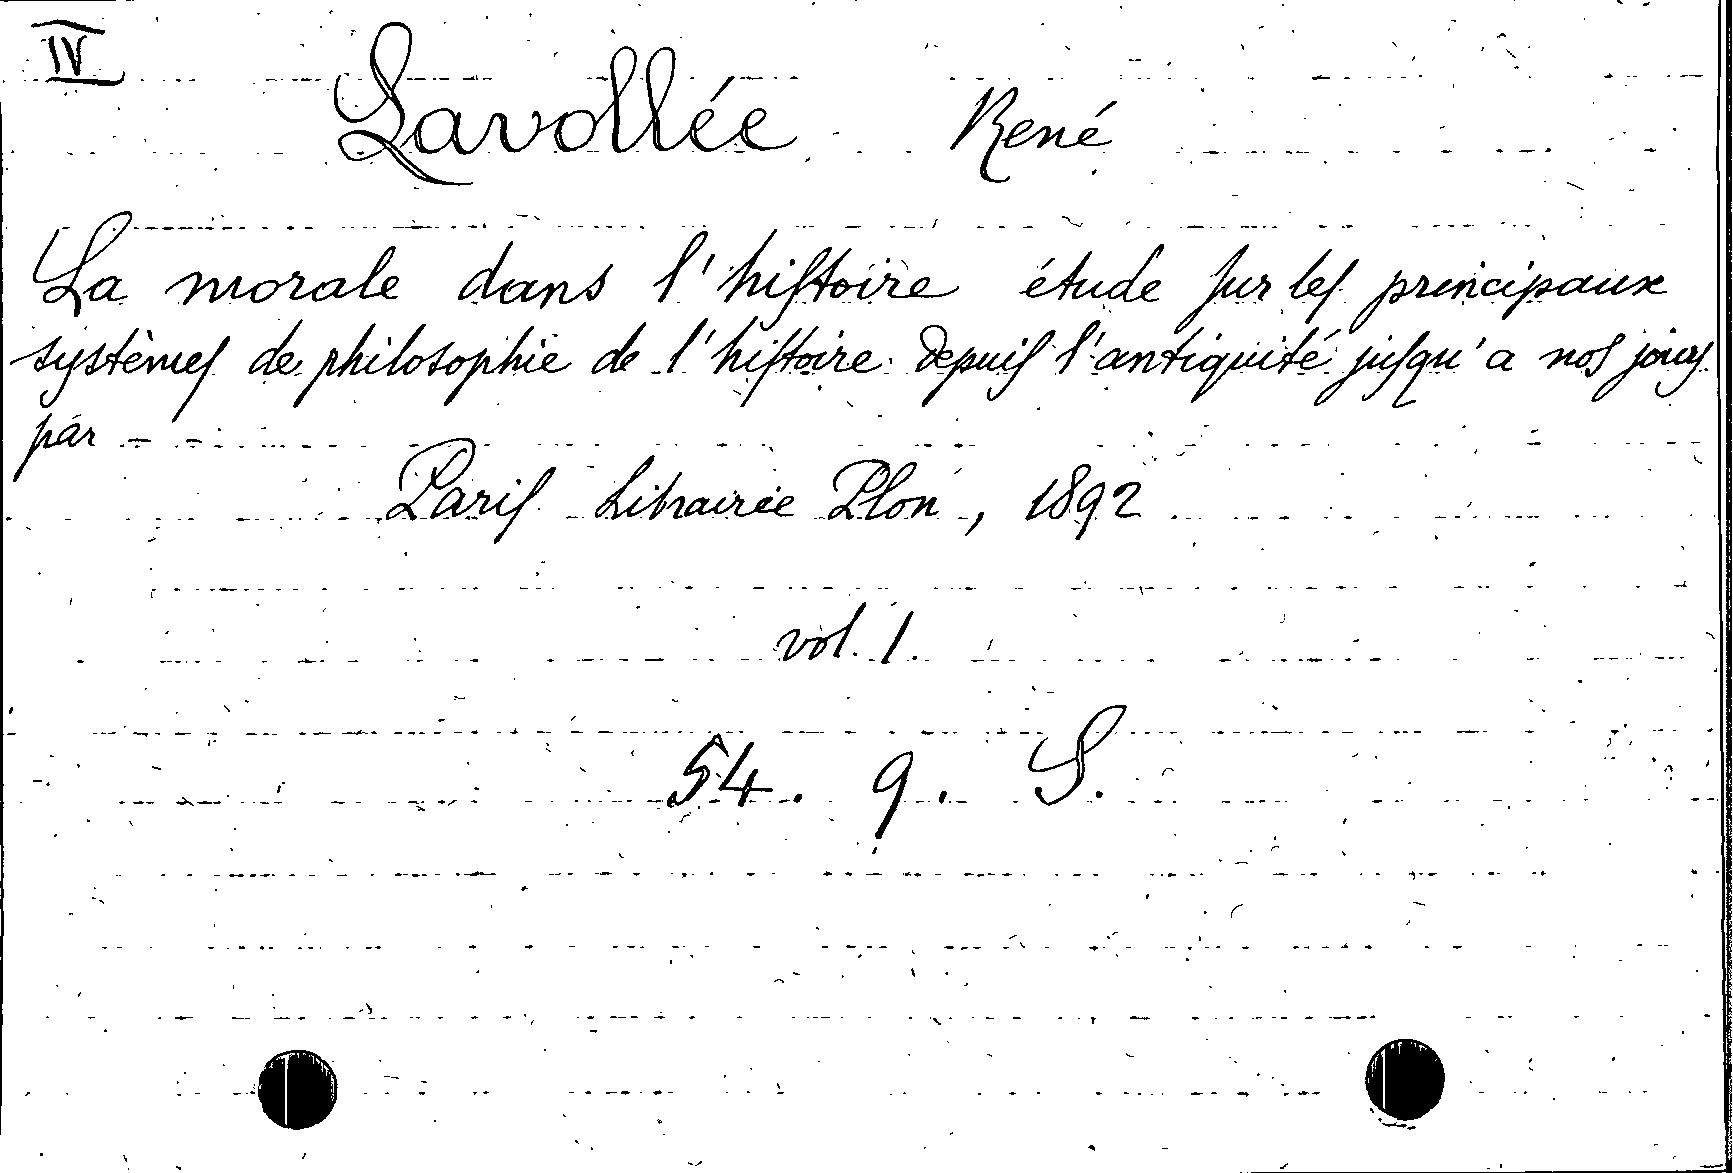 IV
Lavollée René
La morale dans l'histoire étude sur les principaux
systèmes de philosophie de l'histoire depuis l'antiquité jusqu'a nos jours
par -
Paris Librairie Plon, 1892
vol. 1.
54. 9. S.